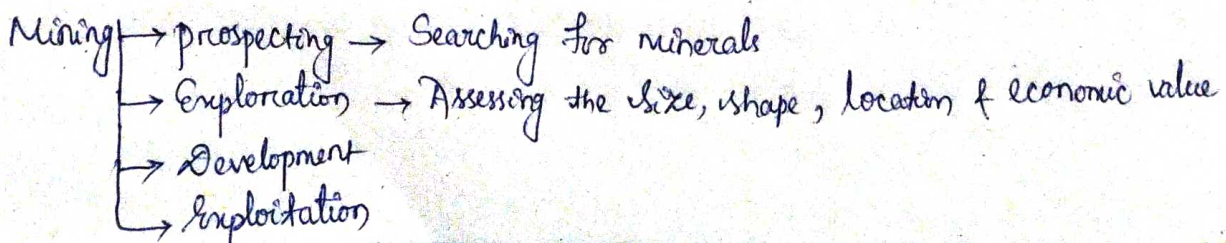 Mining → prospecting → Searching for minerals
→ Exploration → Assessing the size, shape, location & economic value
→ Development
→ Exploitation